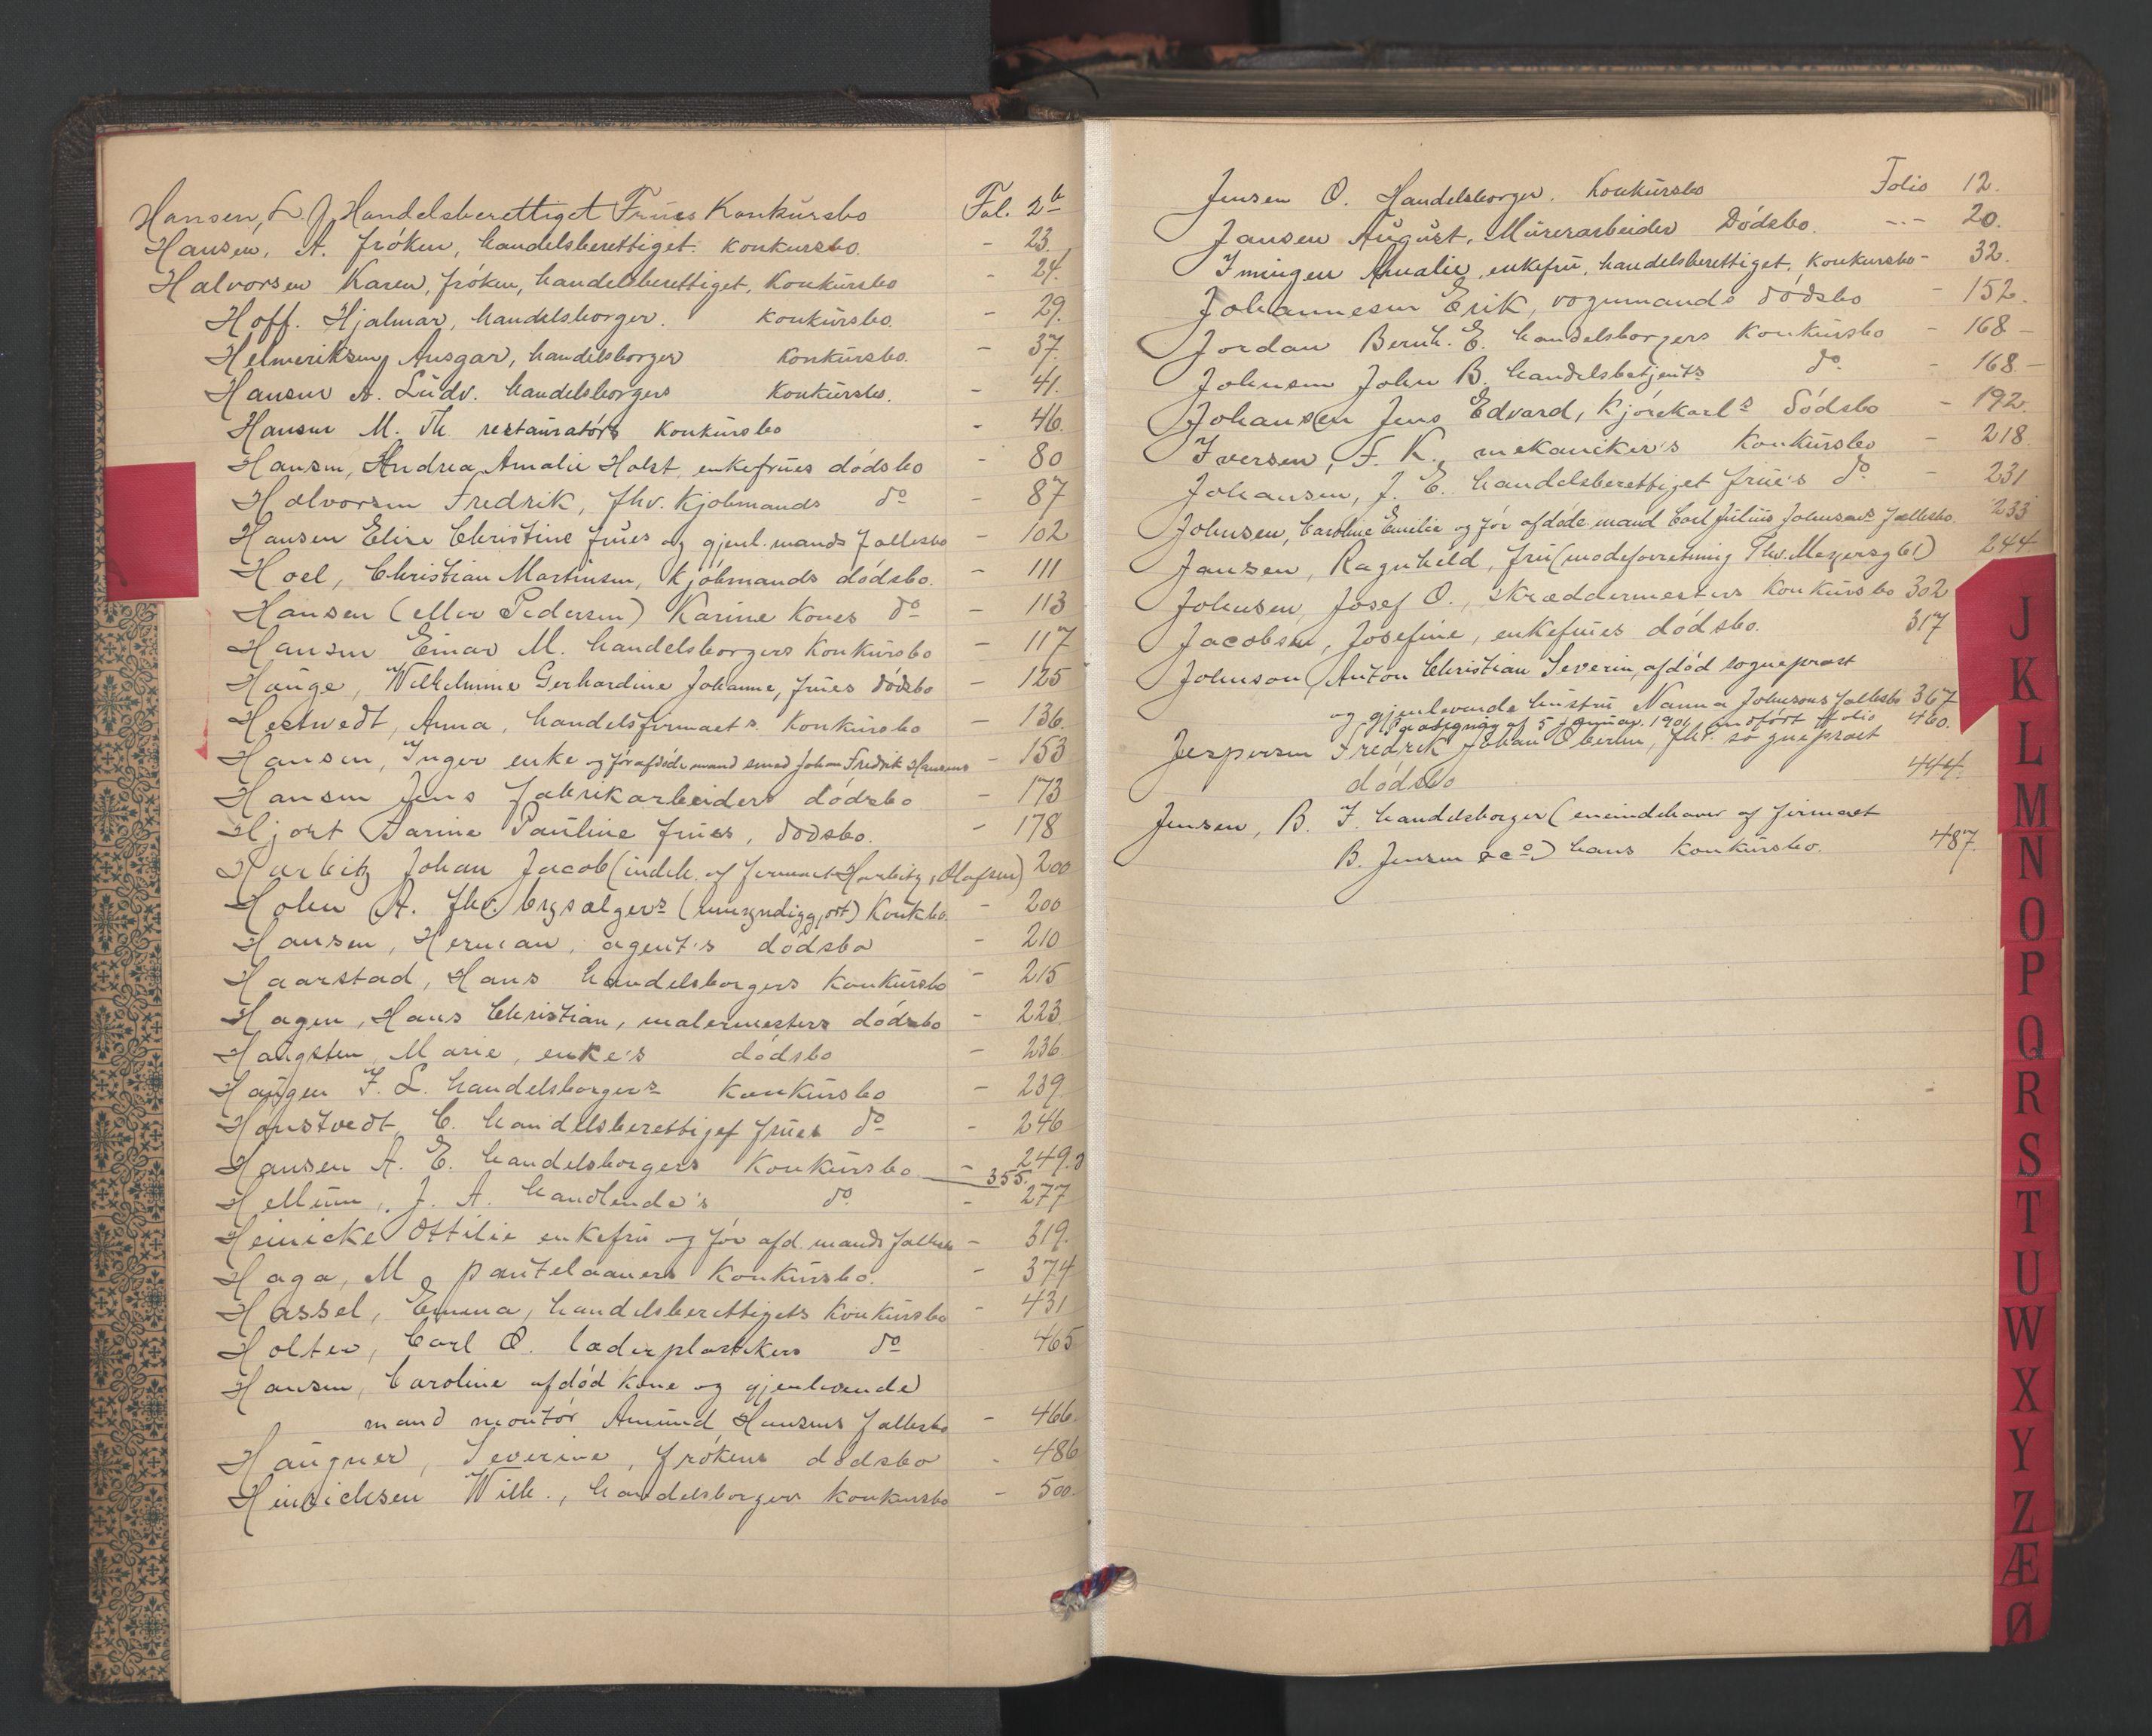 Hansen, L. J. Handelsberettiget Frues Konkursbo Fol. 2b
Hansen, A. frøken, handelsberettiget. konkursbo. - 23.
Halvorsen Karen, frøken, handelsberettiget, Konkursbo - 24.
Hoff. Hjalmar, handelsborger. konkursbo. - 29.
Helmeriksen, Ansgar, handelsborger konkursbo. - 37.
Hansen A. Ludv. handelsborgers konkursbo. - 41.
Hansen M. Th. restauratørs konkursbo - 46.
Hansen, Andrea Amalie Holst, enkefrues dødsbo - 80
Halvorsen Fredrik, fhv. Kjøbmands do - 87
Hansen Elise Christine frues og gjenl. mands fællesbo - 102
Hoel, Christian Martinsen, kjøbmands dødsbo. - 111
Hansen (eller Pedersen) Karine Kones do - 113
Hansen Einar M. handelsborgers Konkursbo - 117
Hauge, Wilhelmine Gerhardine Johanne, frues dødsbo - 125
Hestvedt, Anna, handelsfirmaets konkursbo - 136
Hansen, Inger enke og før afdøde mand smed Johan Fredrik Hansens - 153
Hansen Jens fabrikarbeiders dødsbo - 173
Hjort Marine Pauline frues, dødsbo. - 178
Harbitz Johan Jacob (indeh. af firmaet Harbitz, Olafsen) 200
Holm A. fhv. bysælgers (umyndiggjort) Konkbo. - 200
Hansen, Herman, agent's dødsbo - 210
Haarstad, Hans handelsborgers konkursbo - 215
Hagen, Hans Christian, malermesters dødsbo - 223
Haugsten, Marie, enke's dødsbo - 236
Haugen F. L. handelsborgers konkursbo - 239
Haustvedt, C. handelsberettiget frues do - 246
Hansen A. E. handelsborgers Konkursbo - 249.
355.
Hellum, J. A. handlende's do - 277
Heinicke Ottilie enkefru og før afd. mands fællesbo - 319.
Haga, M. pantelaaners konkursbo. - 374
Hassel, Emma, handelsberettigets konkursbo - 431
Holter, Carl O. læderplastikers do 465
Hansen, Caroline afdød kone og gjenlevende
mand montør Amund Hansens fællesbo - 466.
Haugner, Severine, frøkens dødsbo - 486
Heinrichsen Wilh., handelsborgers konkursbo - 500
Jensen O. Handelsborger. Konkursbo Folio 12.
Jansen August, Murerarbeider Dødsbo. --- 20.
Imingen Amalie, enkefru, handelsberettiget, konkursbo - 32.
Johannesen Erik, vognmands dødsbo - 152.
Jordan Bernh. E. handelsborgers konkursbo - 168 -
Johnsen John B. handelsbetjents do - 168. -
Johansen Jens Edvard, kjørekarls dødsbo - 192.
Iversen, F. K., mekaniker's konkursbo - 218.
Johansen, J. E. handelsberettiget frue's do - 231
Johnsen, Caroline Emilie og før afdøde mand Carl Julius Johnsens fællesbo. 233
Jansen, Ragnhild, fru (modeforretning Thv. Meyersg 61) 244
Johnsen, Josef O., skræddermesters konkursbo 302
Jacobsen, Josefine, enkefrues dødsbo. 317
Johnson Anton Christian Severin, afdød sogneprest
og gjenlevende hustru Nanna Johnsons fællesbo 367
af 5 januar. 1901, indført folio 460.
Jespersen Fredrik Johan Oberlin, fhv. sogneprest
dødsbo 444.
Jensen, B. F. handelsborger (eneindehaver af firmaet
B. Jensen & co) hans konkursbo. 487.
J
K
L
M
N
O
P
Q
R
S
T
U
W
X
Y
Z
Æ
Ø